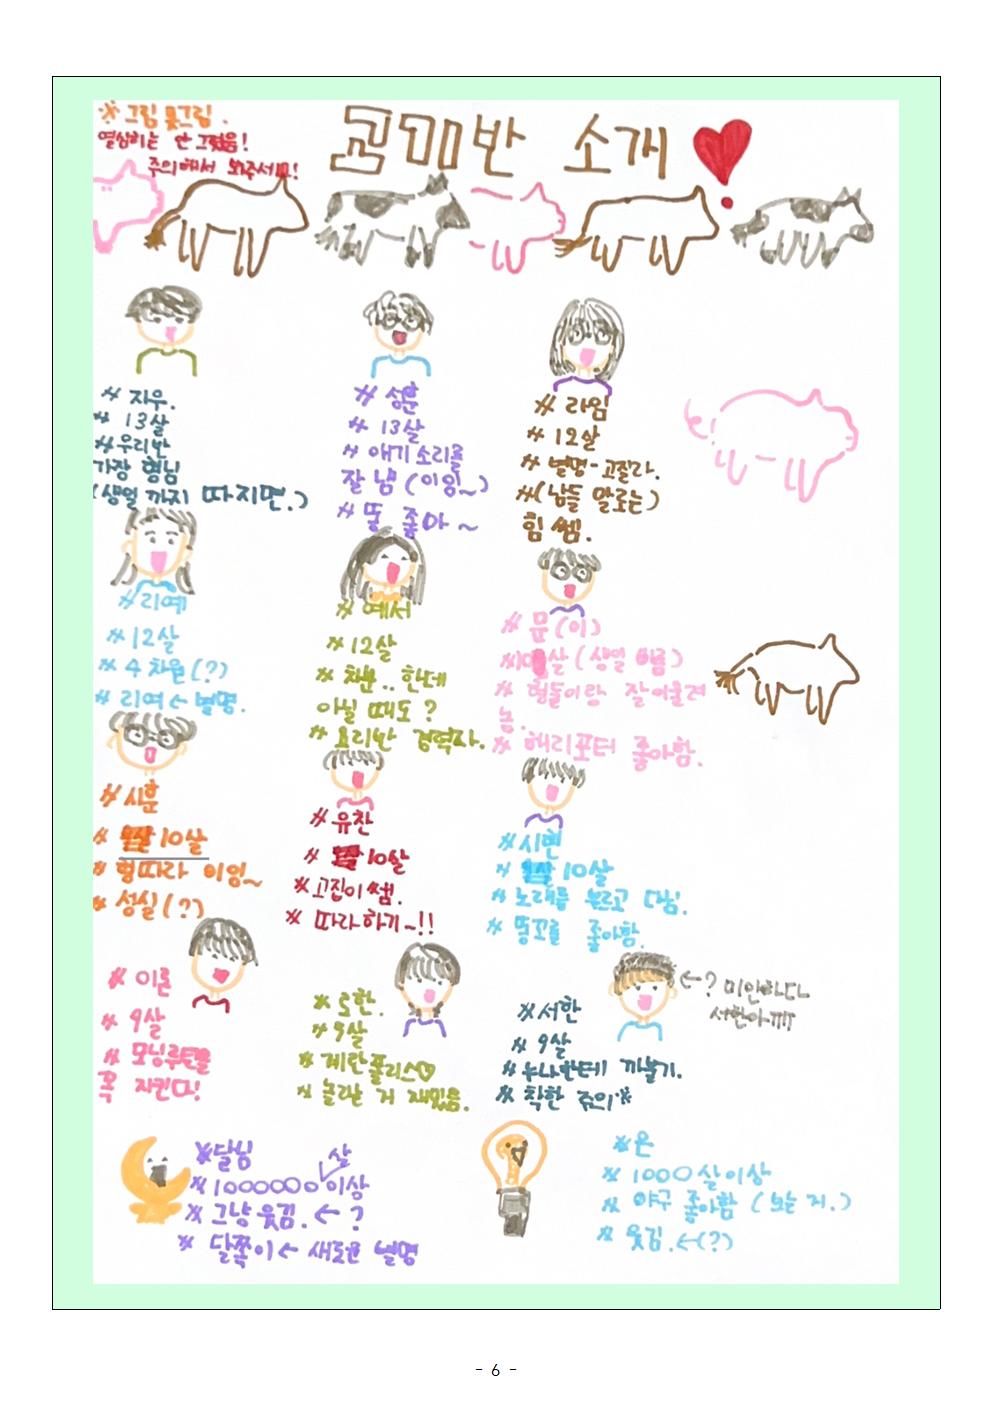 ※ 그림 못그림.
열심히는 안 그렸음!
주의해서 봐주세요!
곰미반 소개
# 지우.
# 13살
# 우리반
가장 형님
(생일 까지 따지면.)
# 성훈
# 13살
# 애기 소리를
잘 냄 (이잉~)
# 똥 좋아~
# 라임
# 12살
# 별명-고질라.
#(남들 말로는)
힘 쎔.
# 리예
# 12살
# 4차원(?)
# 리여 ← 별명.
# 예서
# 12살
# 차분.. 한데
아닐 때도?
# 요리반 경력자.
# 문(이)
살 (생일 빠름)
# 형들이랑 잘 어울려
놈.
# 해리포터 좋아함.
# 시훈
# 10살
# 형따라 이잉~
# 성실(?)
# 유찬
# 10살
# 고집이 쎔.
# 따라하기~!!
# 시현
# 10살
# 노래를 부르고 다님.
# 똥꼬를 좋아함.
# 이른
# 9살
# 모닝루틴을
꼭 지킨다!
# 도한.
# 9살
# 계란폴리스♡
# 놀란 거 재밌음.
# 서한
# 9살
# 누나한테 까불기.
# 착한 주의※
←? 미안하다
서한아ㅠㅠ
# 달님
# 1000000살이상
# 그냥 웃김. ← ?
# 달쪽이 ← 새로운 별명
# 온
# 1000살 이상
# 야구 좋아함 (보는 거.)
# 웃김. ←(?)
- 6 -